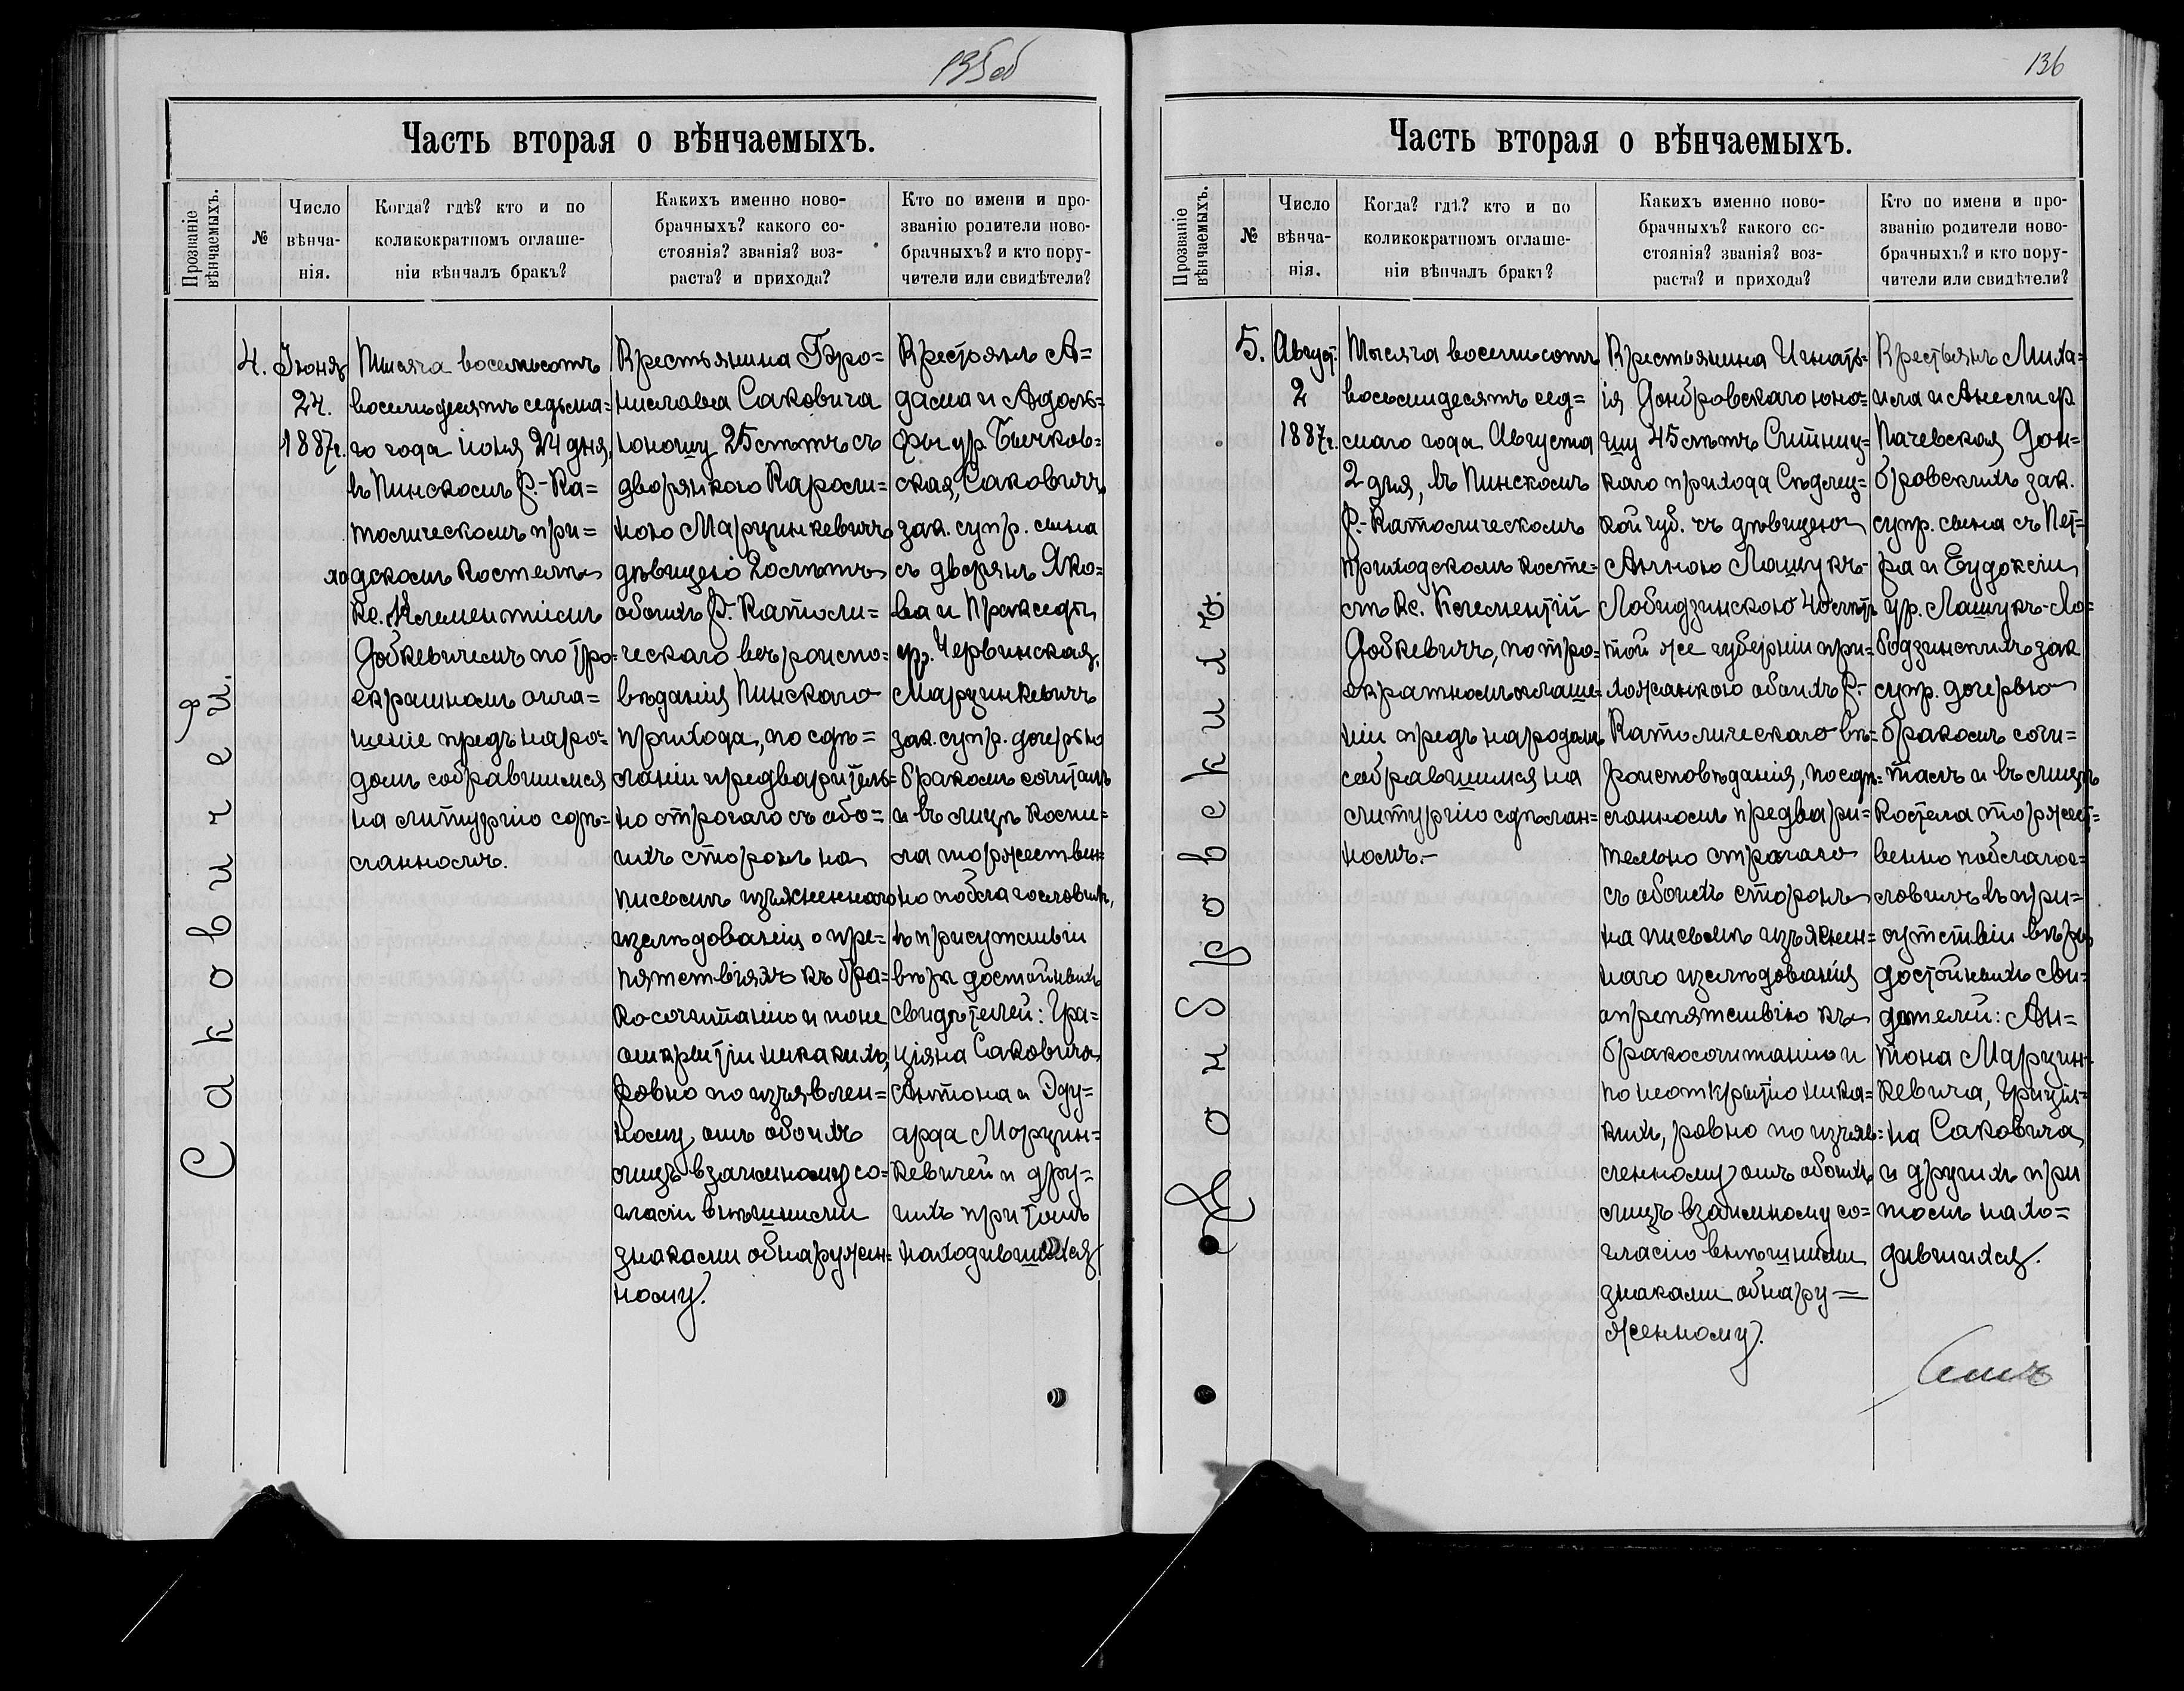 135об
Часть вторая о вѣнчаемыхъ.
Прозваніе
вѣнчаемыхъ.
№
Число
вѣнча-
нія.
Когда? гдѣ? кто и по
коликократномъ оглаше-
ніи вѣнчалъ бракъ?
Какихъ именно ново-
брачныхъ? какого со-
стоянія? званія? воз-
раста? и прихода?
Кто по имени и про-
званію родители ново-
брачныхъ? и кто пору-
чители или свидѣтели?
Саковичей.
4.
Іюня
24.
1887г.
Тысяча восемьсотъ
восемьдесятъ седьма-
го года Іюня 24 дня,
въ Пинскомъ Р.-Ка=
толическомъ при=
ходскомъ костелѣ
Кс. Клементіемъ
Добкевичемъ по тро=
екратномъ огла=
шеніе предъ наро=
домъ собравшимся
на литургію сдѣ=
ланномъ.
Крестьянина Бро=
нислава Саковича
юношу 25 лѣтъ съ
дворянкою Кароли=
ною Марцинкевичъ
дѣвицею 20 лѣтъ
обоихъ Р. Католи=
ческаго вѣроиспо=
вѣданія Пинскаго
прихода, по сдѣ=
ланіи предваритель=
но строгаго съ обо=
ихъ сторонъ на
письмѣ изъясненнаго
изслѣдованія о пре=
пятствіяхъ къ бра=
косочитанію и по не
открытіи никакихъ,
ровно по изъявлен=
ному отъ обоихъ
лицъ взаимному со=
гласіи внѣшними
знаками обнаружен=
ному.
Крестьянъ А=
дама и Адоль=
фы ур. Бычков=
ская, Саковичъ
зак. супр. сына
съ дворянъ Яко=
ва и Пракседы
ур. Червинская,
Марцинкевичъ
зак. супр. дочерью
бракомъ сочиталъ
и въ лицѣ косте=
ла торжествен=
но поблагословилъ,
въ присутствіи
вѣры достойныхъ
свидѣтелей: Гра=
ціяна Саковича
Антона и Эду=
арда Марцин=
кевичей и дру=
гихъ при томъ
находившихся
136
Часть вторая о вѣнчаемыхъ.
Прозваніе
вѣнчаемыхъ.
№
Число
вѣнча-
нія.
Когда? гдѣ? кто и по
коликократномъ оглаше-
ніи вѣнчалъ бракъ?
Какихъ именно ново-
брачныхъ? какого со-
стоянія? званія? воз-
раста? и прихода?
Кто по имени и про-
званію родители ново-
брачныхъ? и кто пору-
чители или свидѣтели?
Домбровскихъ.
5.
Август.
2
1887г.
Тысяча восемьсотъ
восемьдесятъ сед=
маго года Августа
2 дня, въ Пинскомъ
Р.-Католическомъ
приходскомъ косте=
лѣ Кс. Клементій
Добкевичъ, по тро=
екратномъ оглаше=
ніи предъ народомъ
собравшимся на
литургію сдѣлан=
номъ.-
Крестьянина Игнать=
ія Домбровскаго юно=
шу 45 лѣтъ Ситниц=
каго прихода Сѣдлец=
кой губ. съ дѣвицею
Анною Лашукъ-
Лободзинскою 40 лѣтъ
той же губерніи при=
хожанкою обоихъ Р.-
Католическаго вѣ=
роисповѣданія, по сдѣ=
ланномъ предвари=
тельно строгаго
съ обоихъ сторонъ
на письмѣ изъяснен=
наго изслѣдованія
о препятствію къ
бракосочитанію и
по неоткрытію ника=
кихъ, ровно по изъяв=
ленному отъ обоихъ
лицъ взаимному со=
гласію внѣшними
знаками обнару=
женному.
Крестьянъ Миха=
ила и Анели ур
Пачевская Дом=
бровскихъ зак.
супр. сына съ Пет=
ра и Евдоксіи
ур. Лашукъ-Ло=
бодзинскихъ зак
супр. дочерью
бракомъ сочи=
талъ и въ лицѣ
костела торжест=
венно поблагос=
ловилъ въ при=
сутствіи вѣры
достойныхъ сви=
дѣтелей: Ан=
тона Марцин=
кевича, Грація=
на Саковича
и другихъ при
томъ нахо=
дившихся.